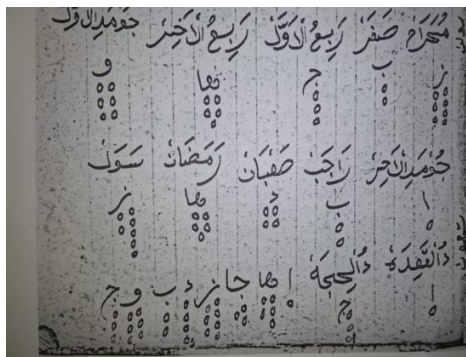 صَفَرْ رَبِيعُ الْاَوَّلْ رَبِيعُ الْاَخِرْ جُومَدِالْاَوَّلْ
ز ب ج ها و
جُومَدِالْاَخِرْ رَاجَبْ صَفْبَانْ رَمَضَانْ سَوَلْ
ا ب د ها ز
دُالْقَعِدَهْ دُالْحِجَهْ
ا ج ا ها جا ز د ب و ج